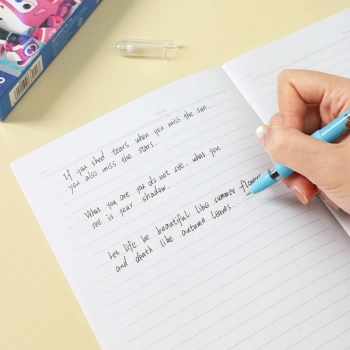 If you shed tears when you miss the sun,
you also miss the stars.
What you are you do not see, what you
see is your shadow.
Let life be beautiful like summer flowers
and death like autumn leaves.